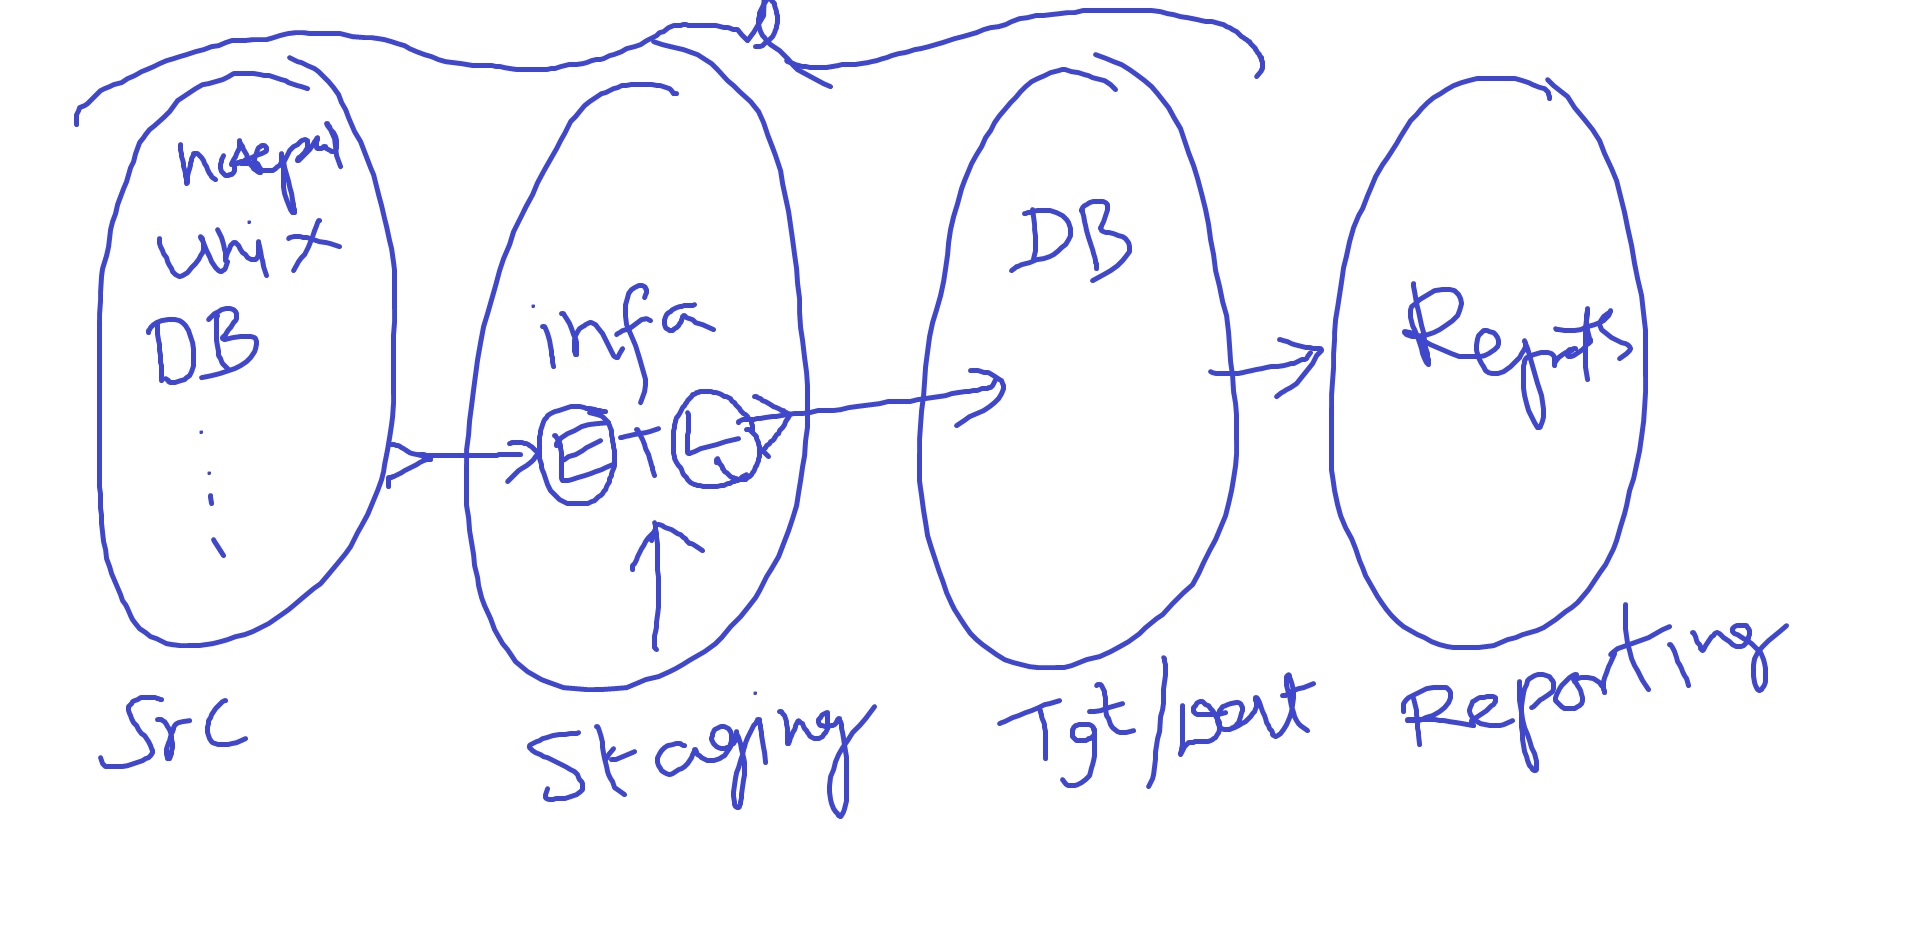 notepad
unix
DB
infa
ETL
DB
Reports
Src
Staging
Tgt/
Reporting